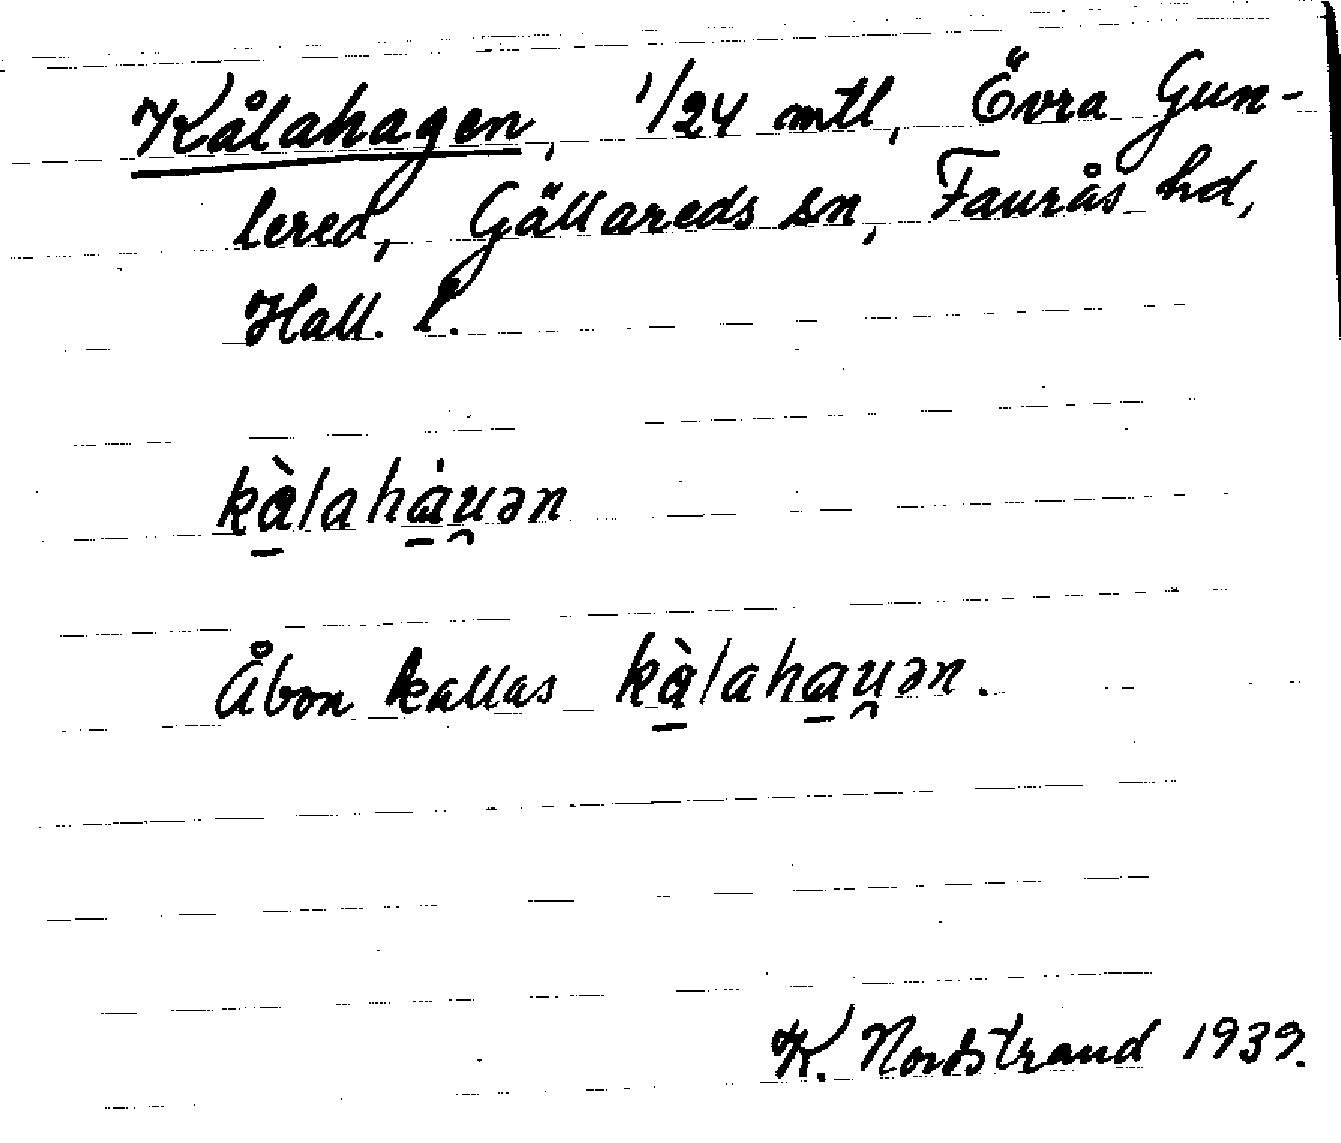 Kålahagen, 1/24 mtl, Övra Gun-
lered, Gällareds sn, Faurås hd,
Hall. l.
kὰ̱lahα̱̇u̯ən
Åbon kallas kὰ̱lahα̱u̯ən.
K. Nordstrand 1939.